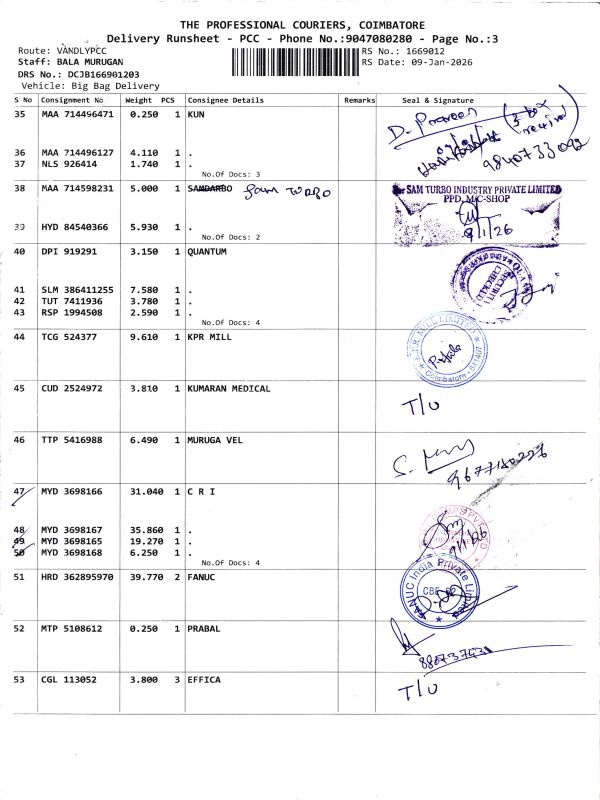 THE PROFESSIONAL COURIERS, COIMBATORE
Delivery Runsheet - PCC - Phone No.:9047080280 - Page No.:3
Route: VANDLYPCC RS No.: 1669012
Staff: BALA MURUGAN RS Date: 09-Jan-2026
DRS No.: DCJB166901203
Vehicle: Big Bag Delivery
S No Consignment No Weight PCS Consignee Details Remarks Seal & Signature
35 MAA 714496471 0.250 1 KUN
D. Praveen
36 MAA 714496127 4.110 1 .
37 NLS 926414 1.740 1 .
No.Of Docs: 3
38 MAA 714598231 5.000 1 SAMDARBO Sam Turbo
SAM TURBO INDUSTRY PRIVATE LIMITED
PPD, M/C-SHOP
9/1/26
39 HYD 84540366 5.930 1 .
No.Of Docs: 2
40 DPI 919291 3.150 1 QUANTUM
SECURITY
CHECKED
41 SLM 386411255 7.580 1 .
42 TUT 7411936 3.780 1 .
43 RSP 1994508 2.590 1 .
No.Of Docs: 4
44 TCG 524377 9.610 1 KPR MILL
K.P.R. MILL LIMITED
Coimbatore - 641407
45 CUD 2524972 3.810 1 KUMARAN MEDICAL
T/U
46 TTP 5416988 6.490 1 MURUGA VEL
47 MYD 3698166 31.040 1 C R I
48 MYD 3698167 35.860 1 .
49 MYD 3698165 19.270 1 .
50 MYD 3698168 6.250 1 .
No.Of Docs: 4
51 HRD 362895970 39.770 2 FANUC
FANUC India Private Limited
52 MTP 5108612 0.250 1 PRABAL
53 CGL 113052 3.800 3 EFFICA
T/U